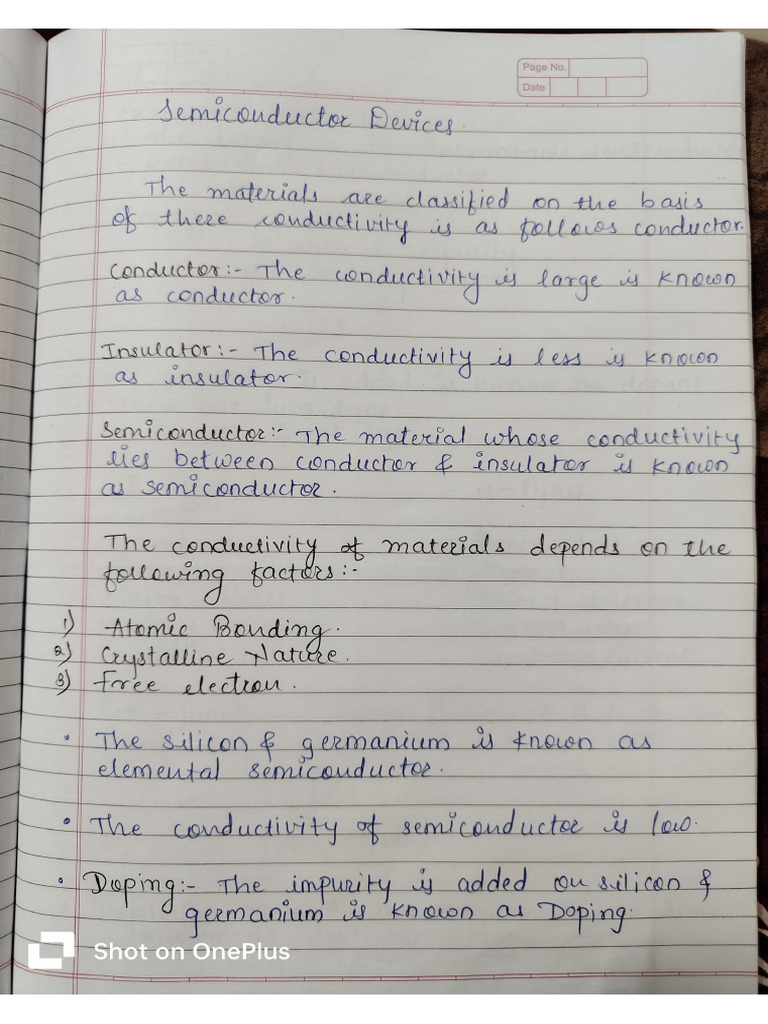 Page No.
Date
Semiconductor Devices.
The materials are classified on the basis
of there conductivity is as follows conductor.
Conductor:- The conductivity is large is known
as conductor.
Insulator:- The conductivity is less is known
as insulator.
Semiconductor:- The material whose conductivity
lies between conductor & insulator is known
as semiconductor.
The conductivity of materials depends on the
following factors:-
1) Atomic Bonding.
2) Crystalline Nature.
3) Free electron.
• The silicon & germanium is known as
elemental semiconductor.
• The conductivity of semiconductor is low.
• Doping:- The impurity is added on silicon &
germanium is known as Doping.
Shot on OnePlus